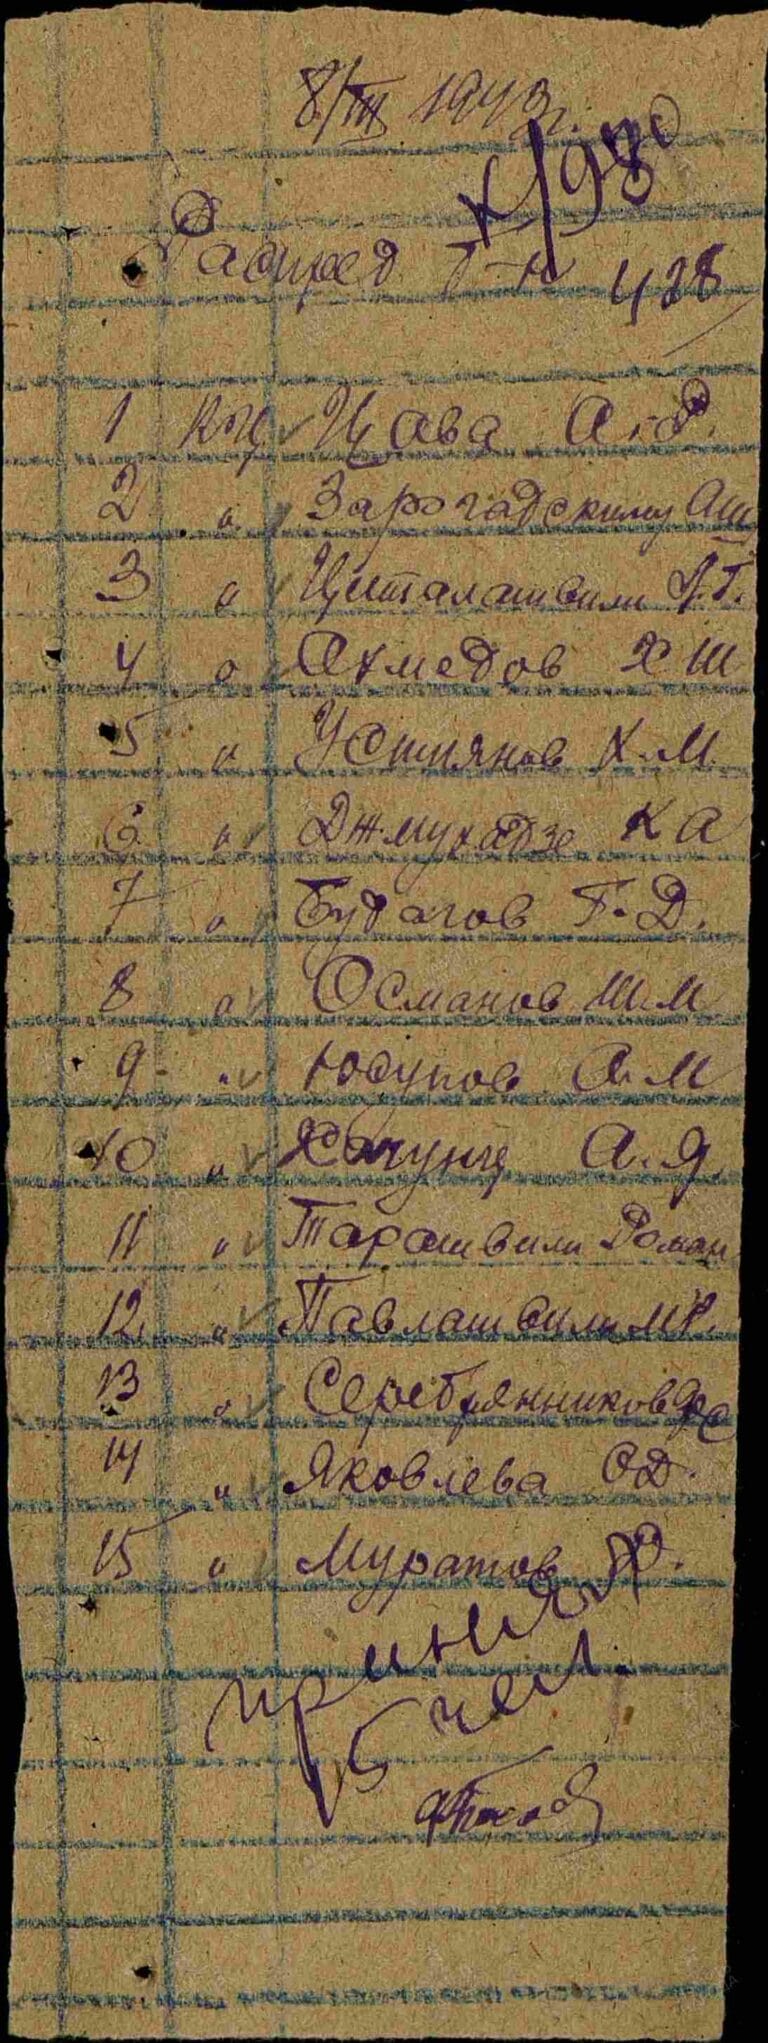 8/III 1943г.
К/980
Распред 428
1 Кц Цава А.Ф.
2 " Зарогадскому
3 " Циталашвили А.Г.
4 " Ахмедов Х Ш
5 " Устиянов К.М.
6 " Джмухадзе К А
7 " Будагов Г.Д.
8 " Османов Ш.М
9 " Юсупов А.М
10 " А.Я.
11 " Тарашвили Роман
12 " Павлашвили
13 " Серебрянников
14 " Яковлева О.Д.
15 " Муратов
принял
15 чел.